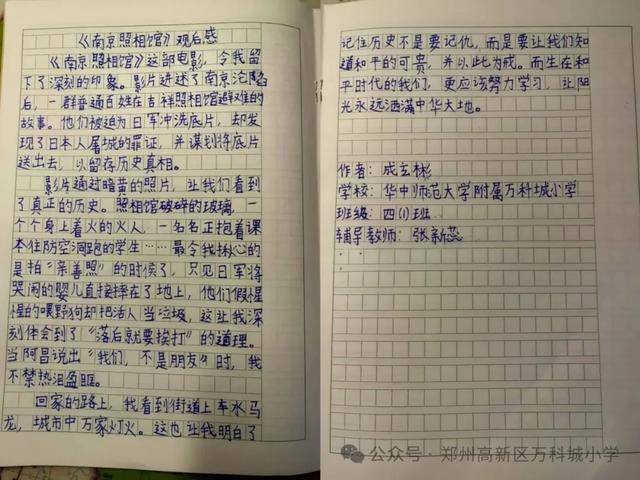 《南京照相馆》观后感
《南京照相馆》这部电影，令我留
下了深刻的印象。影片讲述了南京沦陷
后，一群普通百姓在吉祥照相馆避难的
故事。他们被迫为日军冲洗底片，却发
现了日本人屠城的罪证，并谋划将底片
送出去，以留存历史真相。
影片通过暗黄的照片，让我们看到
了真正的历史。照相馆破碎的玻璃，一
个个身上着火的火人，一名名正抱着课
本往防空洞跑的学生……最令我揪心的
是拍“亲善照”的时候了，只见日军将
哭闹的婴儿直接摔在了地上，他们假惺
惺的喂野狗却把活人当垃圾，这让我深
刻体会到了“落后就要挨打”的道理。
当阿昌说出“我们，不是朋友”时，我
不禁热泪盈眶。
回家的路上，我看到街道上车水马
龙，城市中万家灯火。这也让我明白了
记住历史不是要记仇，而是要让我们知
道和平的可贵，并以此为戒。而生在和
平时代的我们，更应该努力学习，让阳
光永远洒满中华大地。
作者：成玄彬
学校：华中师范大学附属万科城小学
班级：四(1)班
辅导教师：张新蕊
公众号·郑州高新区万科城小学